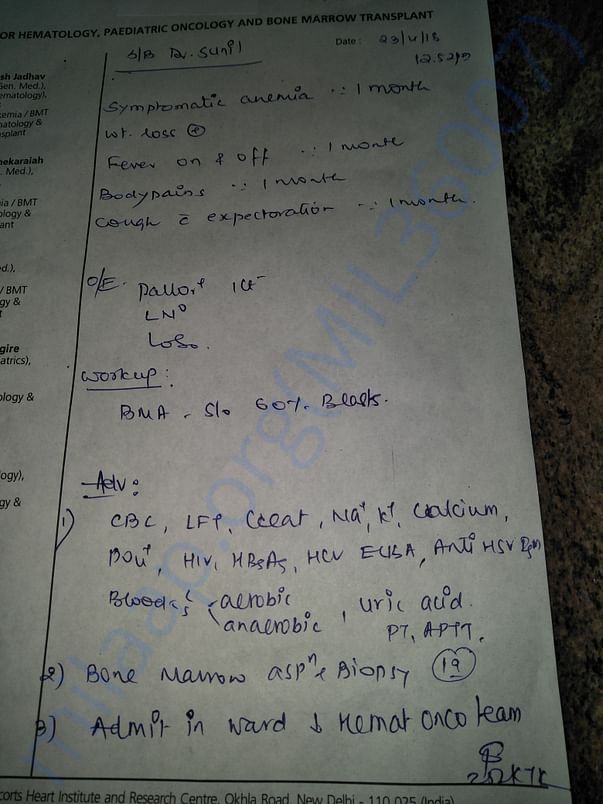 OR HEMATOLOGY, PAEDIATRIC ONCOLOGY AND BONE MARROW TRANSPLANT
S/B Dr. Sunil
Date : 23/4/18
12.52pm
sh Jadhav
Gen. Med.),
ematology),
kemia / BMT
matology &
nsplant
hekaraiah
. Med.),
ia / BMT
ology &
ant
ed.),
/ BMT
gy &
t
gire
atrics),
ology &
ogy),
gy &
Symptomatic anemia ∵ 1 month
Wt. loss ⊕
Fever on & off ∵ 1 month
Bodypains ∵ 1 month
Cough c̄ expectoration ∵ 1 month.
O/E. Pallor+
LN°
Workup:
BMA - S/o 60% Blasts.
Adv:
1) CBC, LFT, Creat, Na+, K+, Calcium,
HIV, HBsAg, HCV ELISA, Anti HSV IgM
Blood c/s aerobic
anaerobic, uric acid.
PT, APTT.
2) Bone Marrow aspn & Biopsy (19)
3) Admit in ward ↓ Hemat onco team
corts Heart Institute and Research Centre, Okhla Road, New Delhi - 110 025 (India)
milaap.org(MIL36007)